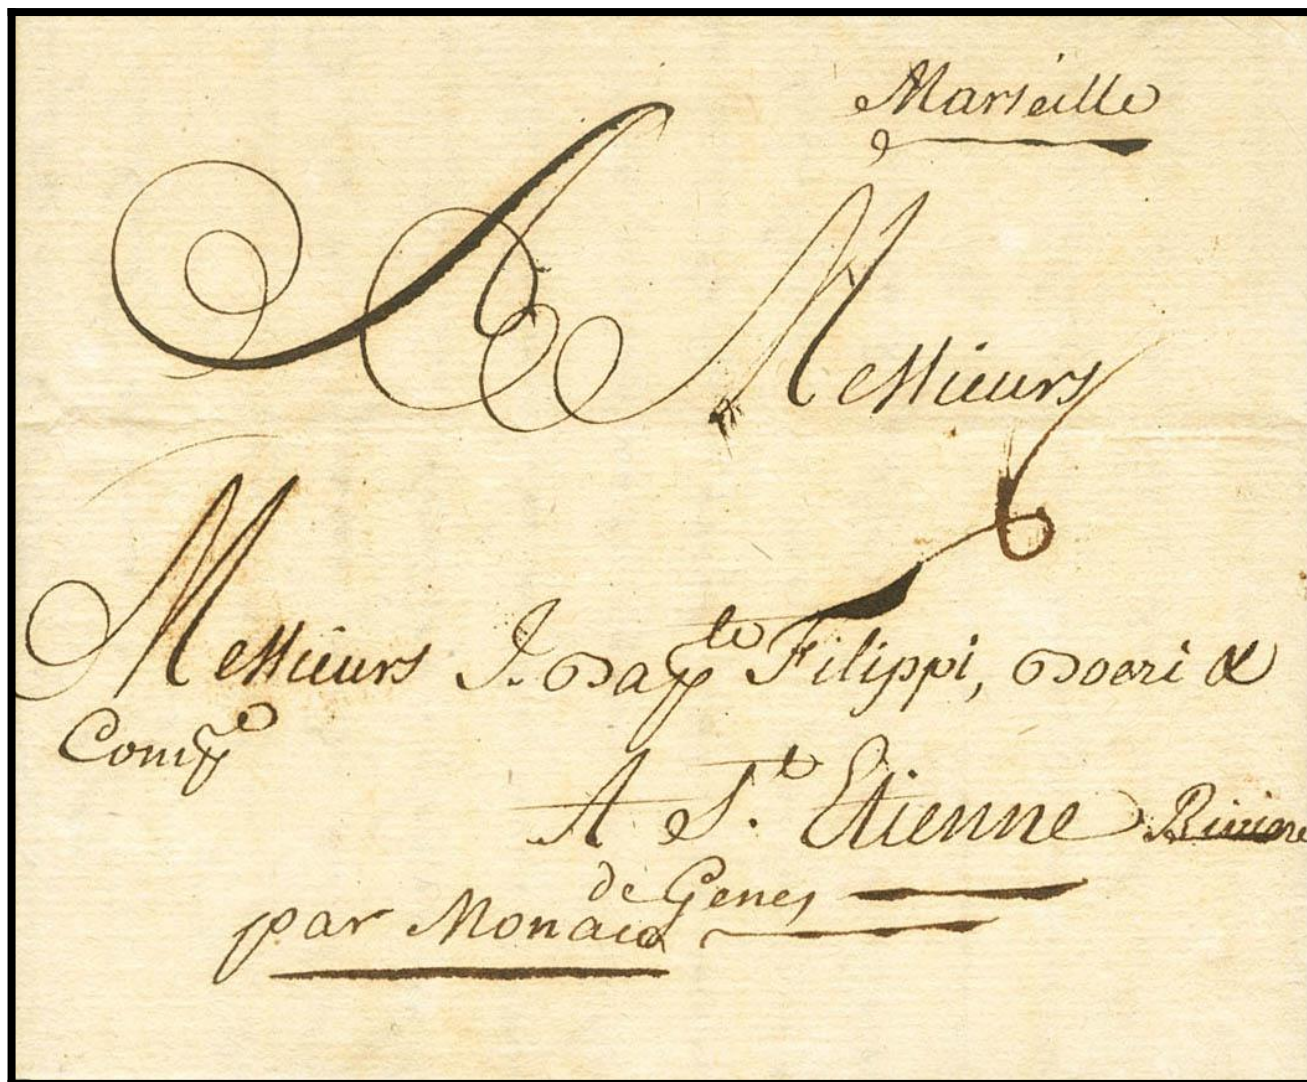 Marseille
A Messieurs
Messieurs J. Bap^te Filippi, Boeri &
Comp^e
A S.^t Etienne Riviere
de Genes
par Monaco